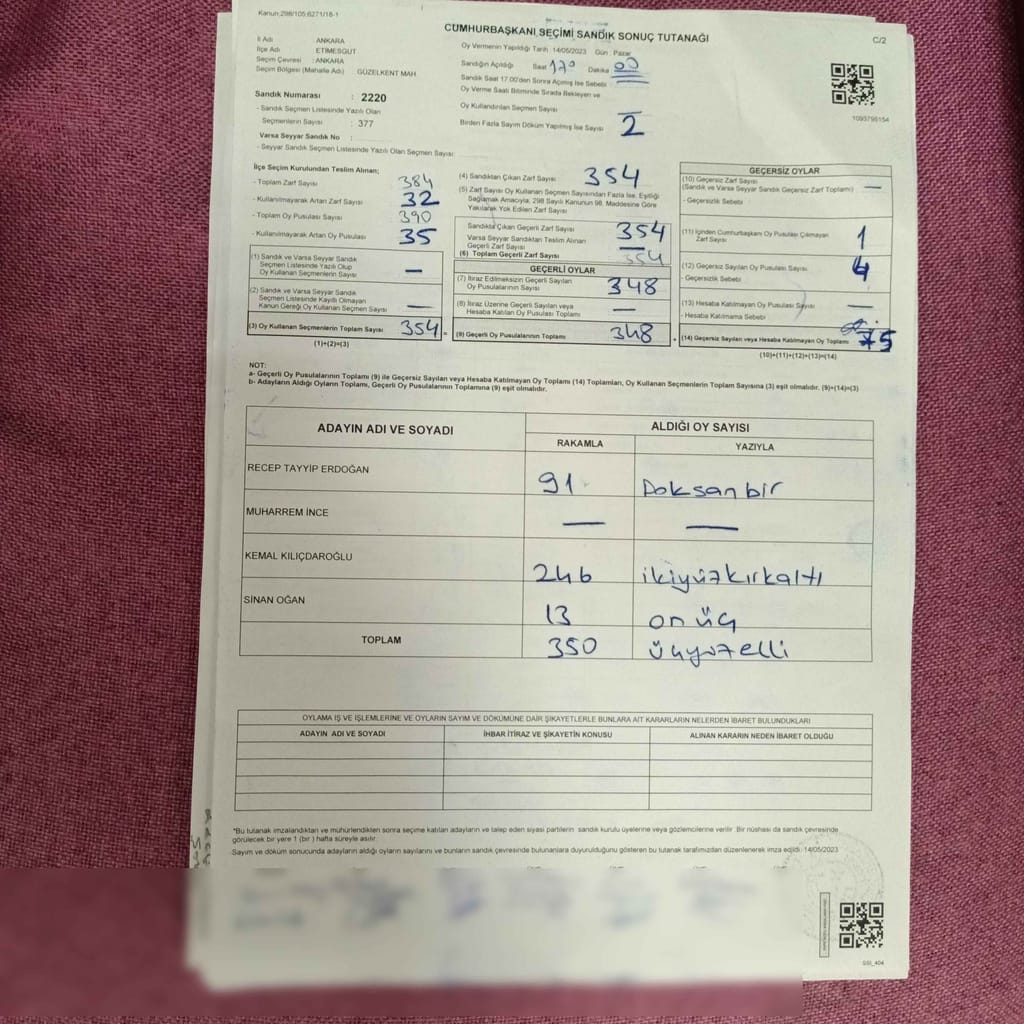 Kanun:298/105:6271/18-1
CUMHURBAŞKANI SEÇİMİ SANDIK SONUÇ TUTANAĞI
C/2
İl Adı ANKARA
İlçe Adı ETİMESGUT
Seçim Çevresi : ANKARA
Seçim Bölgesi (Mahalle Adı) GÜZELKENT MAH
Oy Vermenin Yapıldığı Tarih 14/05/2023 Gün : Pazar
Sandığın Açıldığı Saat 17⁰ Dakika 00
Sandık Saat 17:00'den Sonra Açılmış İse Sebebi
Oy Verme Saati Bitiminde Sırada Bekleyen ve
Oy Kullandırılan Seçmen Sayısı
Birden Fazla Sayım Döküm Yapılmış İse Sayısı 2
1093795154
Sandık Numarası : 2220
- Sandık Seçmen Listesinde Yazılı Olan
Seçmenlerin Sayısı : 377
Varsa Seyyar Sandık No :
- Seyyar Sandık Seçmen Listesinde Yazılı Olan Seçmen Sayısı:
İlçe Seçim Kurulundan Teslim Alınan;
- Toplam Zarf Sayısı 384
- Kullanılmayarak Artan Zarf Sayısı 32
- Toplam Oy Pusulası Sayısı 390
- Kullanılmayarak Artan Oy Pusulası 35
(1) Sandık ve Varsa Seyyar Sandık
Seçmen Listesinde Yazılı Olup
Oy Kullanan Seçmenlerin Sayısı —
(2) Sandık ve Varsa Seyyar Sandık
Seçmen Listesinde Kayıtlı Olmayan
Kanun Gereği Oy Kullanan Seçmen Sayısı —
(3) Oy Kullanan Seçmenlerin Toplam Sayısı 354 =
(1)+(2)=(3)
(4) Sandıktan Çıkan Zarf Sayısı 354
(5) Zarf Sayısı Oy Kullanan Seçmen Sayısından Fazla İse, Eşitliği
Sağlamak Amacıyla, 298 Sayılı Kanunun 98. Maddesine Göre
Yakılarak Yok Edilen Zarf Sayısı
Sandıkta Çıkan Geçerli Zarf Sayısı 354
Varsa Seyyar Sandıktan Teslim Alınan
Geçerli Zarf Sayısı —
(6) Toplam Geçerli Zarf Sayısı 354
GEÇERLİ OYLAR
(7) İtiraz Edilmeksizin Geçerli Sayılan
Oy Pusulalarının Sayısı 348
(8) İtiraz Üzerine Geçerli Sayılan veya
Hesaba Katılan Oy Pusulası Toplamı —
(9) Geçerli Oy Pusulalarının Toplamı 348 +
GEÇERSİZ OYLAR
(10) Geçersiz Zarf Sayısı
(Sandık ve Varsa Seyyar Sandık Geçersiz Zarf Toplamı) —
- Geçersizlik Sebebi
(11) İçinden Cumhurbaşkanı Oy Pusulası Çıkmayan
Zarf Sayısı 1
(12) Geçersiz Sayılan Oy Pusulası Sayısı 4
- Geçersizlik Sebebi
(13) Hesaba Katılmayan Oy Pusulası Sayısı —
- Hesaba Katılmama Sebebi
(14) Geçersiz Sayılan veya Hesaba Katılmayan Oy Toplamı 5
(10)+(11)+(12)+(13)=(14)
NOT:
a- Geçerli Oy Pusulalarının Toplamı (9) ile Geçersiz Sayılan veya Hesaba Katılmayan Oy Toplamı (14) Toplamları, Oy Kullanan Seçmenlerin Toplam Sayısına (3) eşit olmalıdır. (9)+(14)=(3)
b- Adayların Aldığı Oyların Toplamı, Geçerli Oy Pusulalarının Toplamına (9) eşit olmalıdır.
ADAYIN ADI VE SOYADI
ALDIĞI OY SAYISI
RAKAMLA YAZIYLA
RECEP TAYYİP ERDOĞAN 91 Doksanbir
MUHARREM İNCE — —
KEMAL KILIÇDAROĞLU 246 ikiyüzkırkaltı
SİNAN OĞAN 13 onüç
TOPLAM 350 üçyüzelli
OYLAMA İŞ VE İŞLEMLERİNE VE OYLARIN SAYIM VE DÖKÜMÜNE DAİR ŞİKAYETLERLE BUNLARA AİT KARARLARIN NELERDEN İBARET BULUNDUKLARI
ADAYIN ADI VE SOYADI İHBAR İTİRAZ VE ŞİKAYETİN KONUSU ALINAN KARARIN NEDEN İBARET OLDUĞU
*Bu tutanak imzalandıktan ve mühürlendikten sonra seçime katılan adayların ve talep eden siyasi partilerin sandık kurulu üyelerine veya gözlemcilerine verilir. Bir nüshası da sandık çevresinde
görülecek bir yere 1 (bir) hafta süreyle asılır.
Sayım ve döküm sonucunda adayların aldığı oyların sayılarını ve bunların sandık çevresinde bulunanlara duyurulduğunu gösteren bu tutanak tarafımızdan düzenlenerek imza edildi. 14/05/2023
SSİ_404